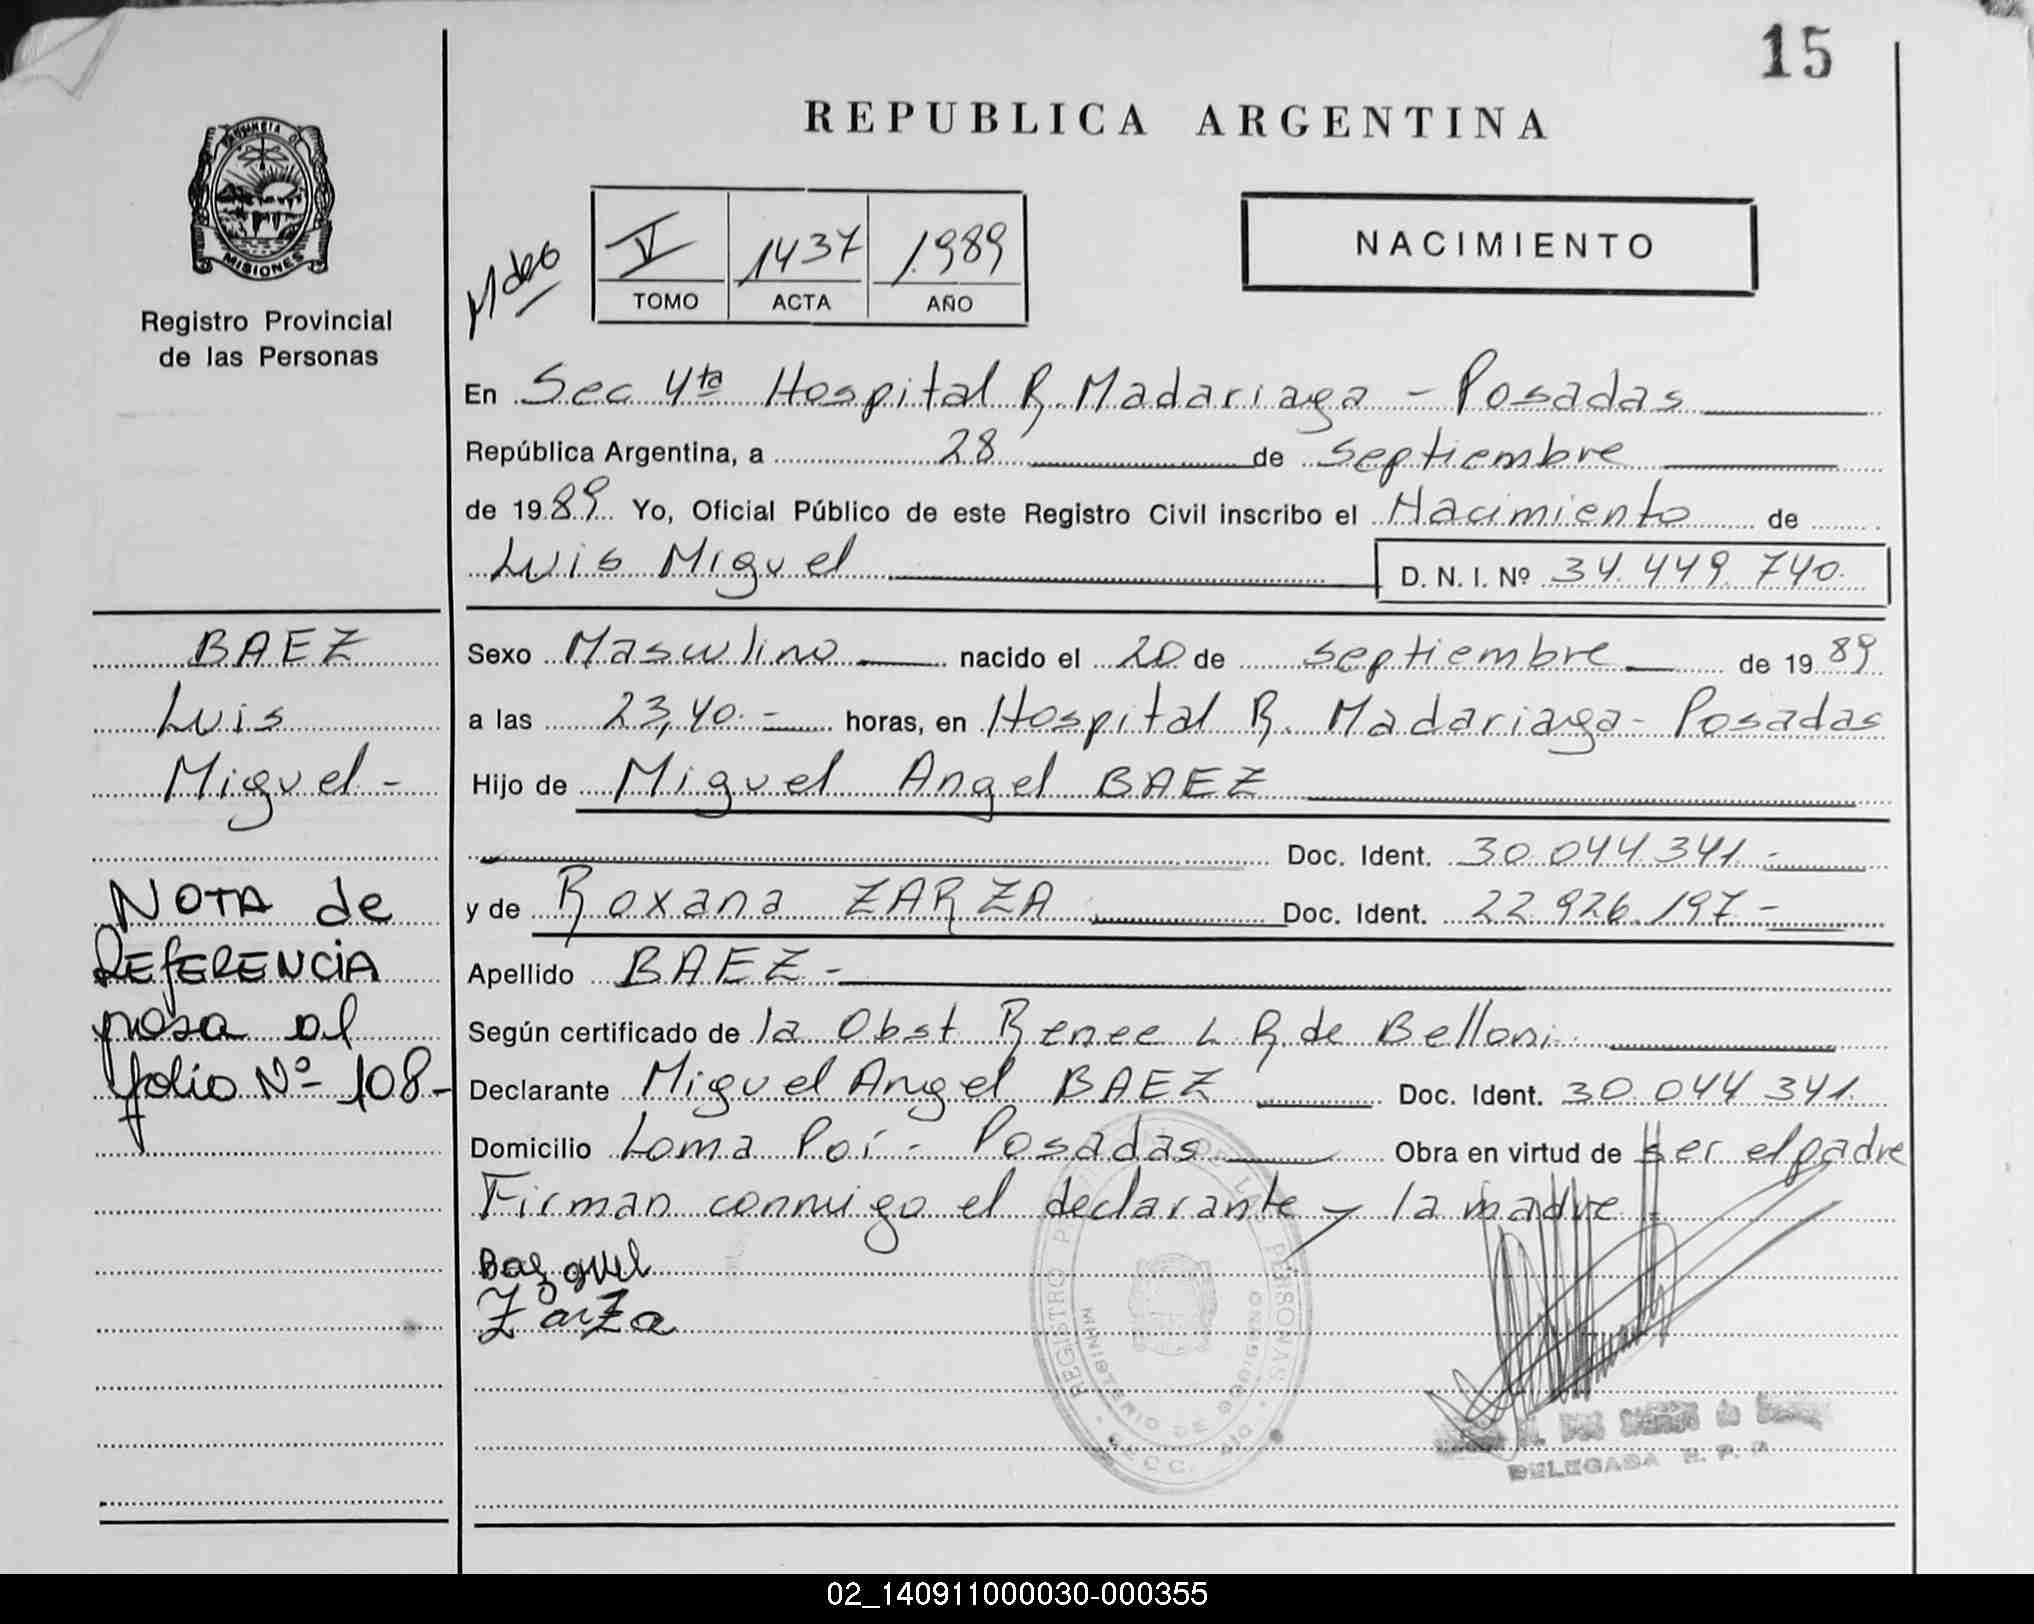 15
REPUBLICA ARGENTINA
PROVINCIA DE
MISIONES
Registro Provincial
de las Personas
V 1437 1989
TOMO ACTA AÑO
NACIMIENTO
En Sec 4ta Hospital R. Madariaga - Posadas
República Argentina, a 28 de septiembre
de 1989 Yo, Oficial Público de este Registro Civil inscribo el Nacimiento de
Luis Miguel D. N. I. Nº 34.449.740.
BAEZ
Luis
Miguel -
Sexo Masculino nacido el 20 de septiembre de 1989
a las 23,40.- horas, en Hospital R. Madariaga - Posadas
Hijo de Miguel Angel BAEZ
Doc. Ident. 30.044.341.-
y de Roxana ZARZA Doc. Ident. 22.926.197.-
Apellido BAEZ -
Según certificado de la Obst. Renee L. R. de Belloni
Declarante Miguel Angel BAEZ Doc. Ident. 30.044.341.
Domicilio Loma Poí - Posadas Obra en virtud de ser el padre
Firman conmigo el declarante y la madre
NOTA de
REFERENCIA
pasa al
folio Nº 108-
Zarza
REGISTRO PROVINCIAL DE LAS PERSONAS
MINISTERIO DE GOBIERNO
DELEGADA R. P. P.
02_140911000030-000355